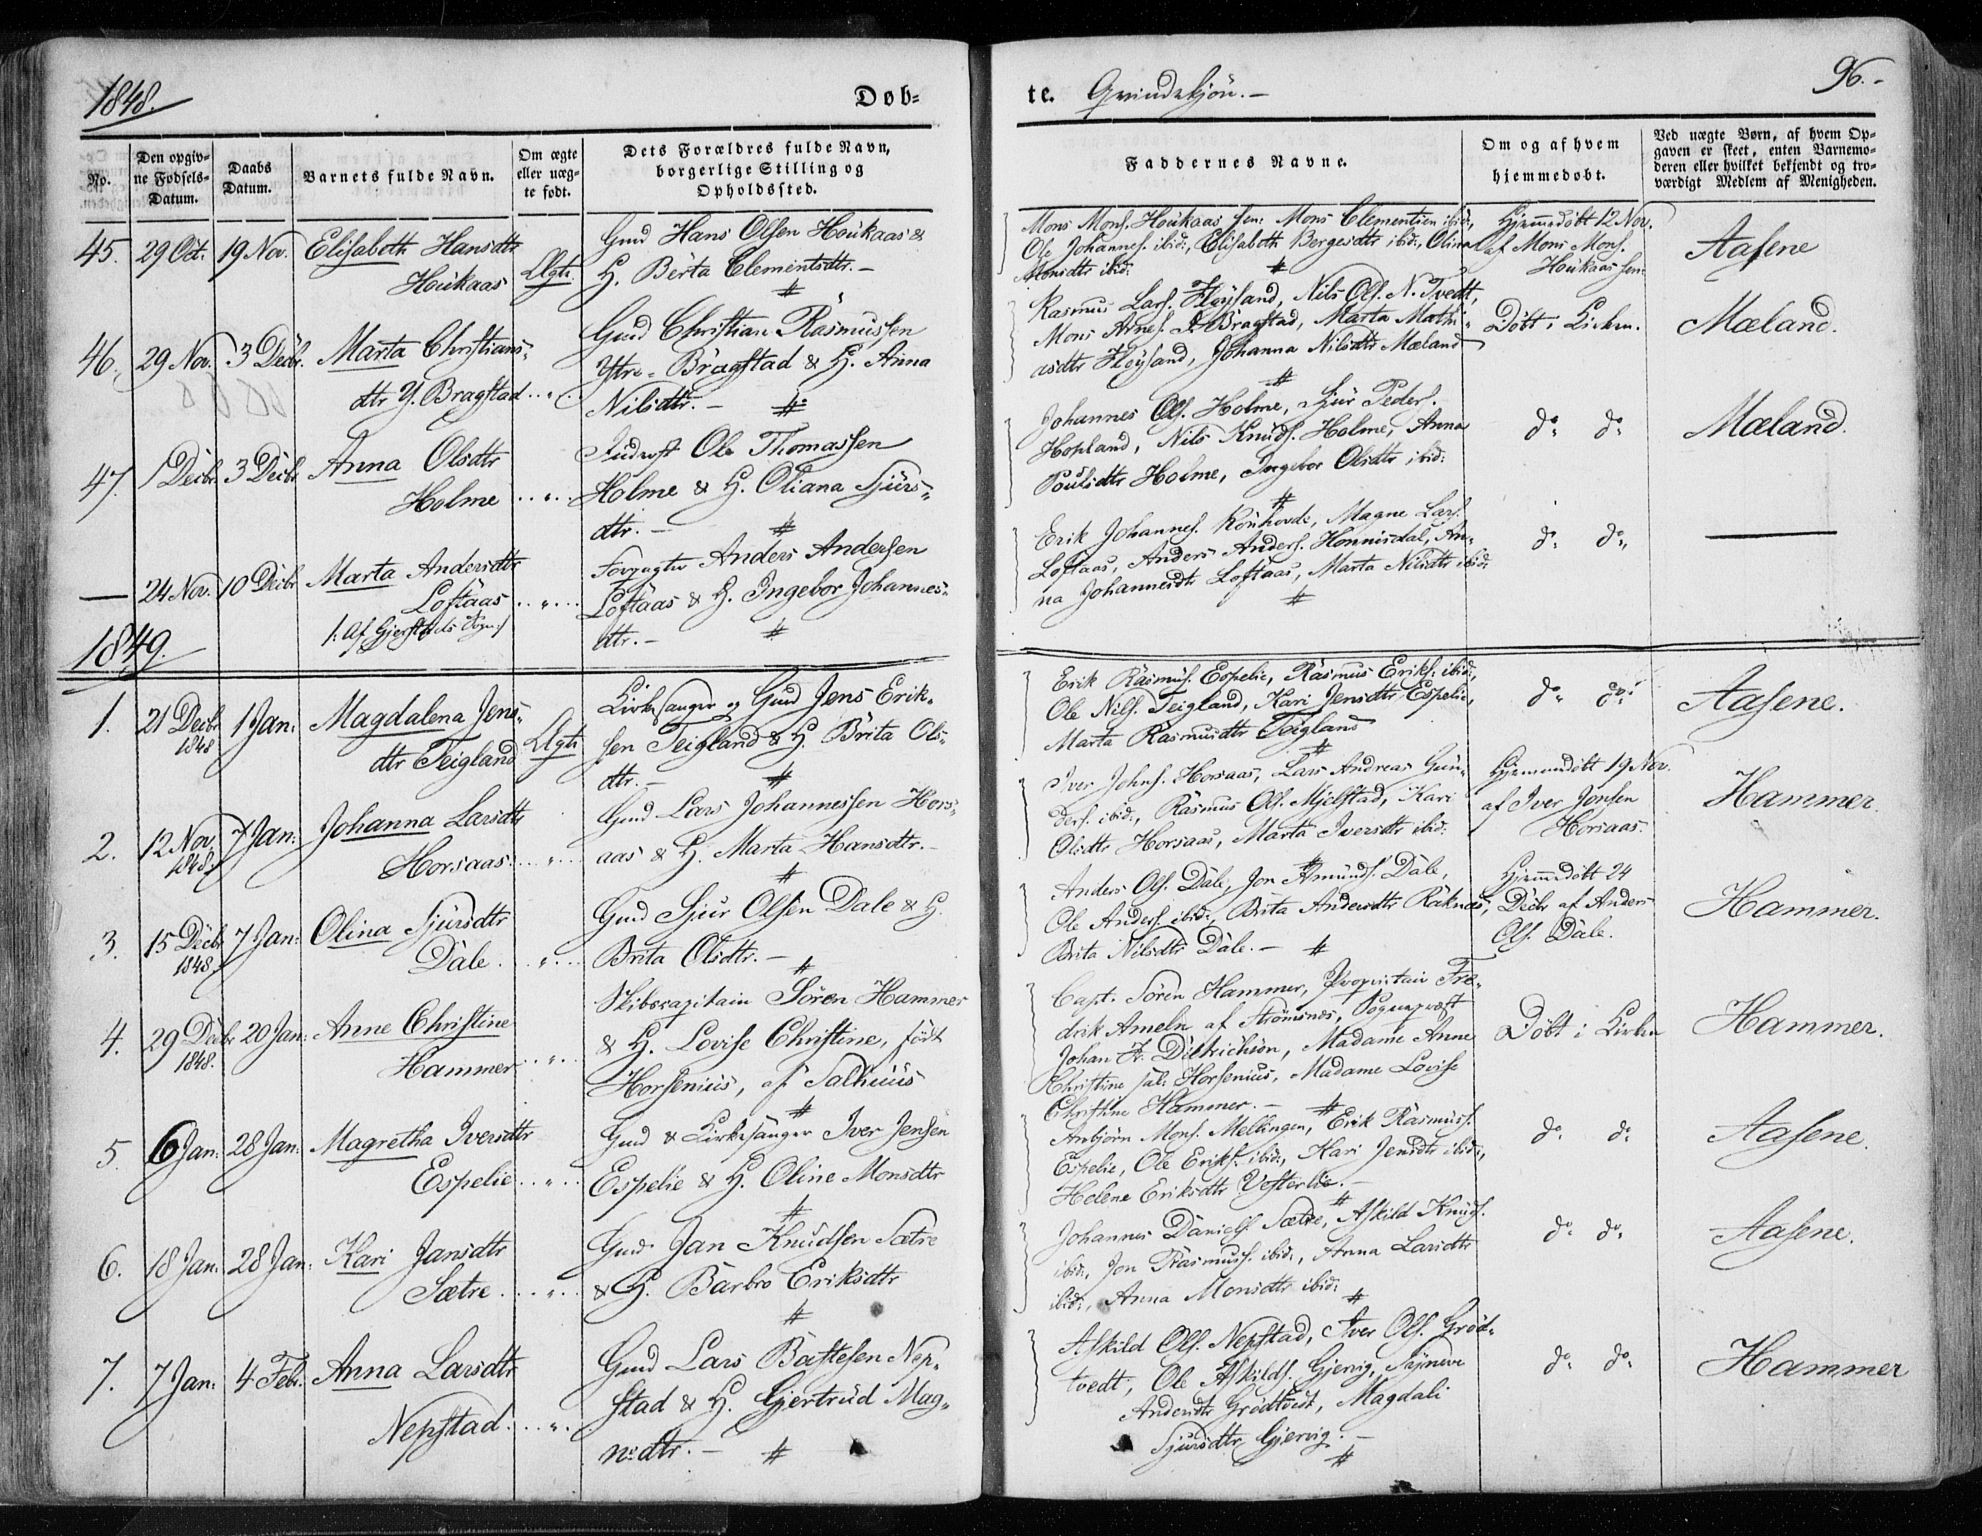 1848.
Døb-
te. Qvindekjön.-
96.-
No.
Den opgiv-
ne Fødsels-
Datum.
Daabs
Datum.
Barnets fulde Navn.
Om ægte
eller uæg-
te født.
Dets Forældres fulde Navn,
borgerlige Stilling og
Opholdssted.
Faddernes Navne.
Om og af hvem
hjemmedøbt.
Ved uægte Børn, af hvem Op-
gaven er skeet, enten Barnemo-
deren eller hvilket bekjendt og tro-
værdigt Medlem af Menigheden.
45. 29 Oct. 19 Nov. Elisabeth Hansdtr
Houkaas
Ægte
Gmd Hans Olsen Houkaas &
H. Berta Clementsdtr.-
Mons Mons. Houkaas sen: Mons Clementsen ibid:,
Ole Johannes. ibid:, Elisabeth Bergesdtr ibid:, Olina
Monsdtr ibid:
Hjemmedöbt 12 Nov.
af Mons Mons.
Houkaas sen:
Aasene
46. 29 Nov. 3 Decbr. Marta Christians-
dtr Y. Bragstad
Gmd Christian Rasmussen
Ytre-Bragstad & H. Anna
Nilsdtr.-
Rasmus Lars. Fløysand, Nils Ols. N. Tvedt,
Mons Arnes. Bragstad, Marta Mathi-
asdtr Fløysand, Johanna Nilsdtr Mæland
Döbt i Kirken.
Mæland.
47. 1 Decbr. 3 Decbr Anna Olsdtr
Holme
Inderst Ole Thomassen
Holme & H. Oliana Sjurs-
dtr.-
Johannes Ols. Holme, Sjur Peders.
Hopland, Nils Knuds. Holme, Anna
Poulsdtr Holme, Ingebor Olsdtr ibid:
do. do.
Mæland.
— 24 Nov. 10 Decbr Marta Andersdtr
Loftaas
/: Af Gjerstads Sogn :/
Forpagter Anders Andersen
Loftaas & H. Ingebor Johannes-
dtr.-
Erik Johannes. Rönhovde, Magne Lars.
Loftaas, Anders Anders. Honnisdal, An-
na Johannesdtr Loftaas, Marta Nilsdtr ibid:
do. do.
—
1849.
1. 21 Decbr
1848
1 Jan: Magdalena Jens-
dtr Teigland
Ægte
Kirkesanger og Gmd Jens Erik-
sen Teigland & H. Brita Ols-
dtr.-
Erik Rasmus. Espelie, Rasmus Eriks. ibid:,
Ole Nils. Teigland, Kari Jensdtr Espelie,
Marta Rasmusdtr Teigland
do. do.
Aasene.
2. 12 Nov.
1848
7 Jan: Johanna Larsdtr
Horsaas
Gmd Lars Johannessen Hors-
aas & H. Marta Hansdtr.-
Iver Johns. Horsaas, Lars Andreas Gun-
ders. ibid:, Rasmus Ols. Mjelstad, Kari
Olsdtr Horsaas, Marta Iversdtr ibid:
Hjemmedöbt 19 Nov.
af Iver Jonsen
Horsaas.
Hammer
3. 15 Decbr
1848.
7 Jan: Olina Sjursdtr
Dale
Gmd Sjur Olsen Dale & H.
Brita Olsdtr.-
Anders Ols. Dale, Jon Amunds. Dale,
Ole Anders. ibid:, Brita Andersdtr Raknes,
Brita Nilsdtr Dale.-
Hjemmedöbt 24
Decbr af Anders
Ols. Dale.
Hammer.
4. 29 Decbr
1848.
20 Jan: Anne Christine
Hammer
Skibscapitain Sören Hammer
& H. Lovise Christine, födt
Horsenius, af Salhuus
Capt. Sören Hammer, Proprietair Fre-
drik Ameln af Strömsnes, Sognepræst
Johan Fr. Ditrichson, Madame Anne
Christine sal: Horsenius, Madame Lovise
Christine Hammer.-
Döbt i Kirken
Hammer.
5. 6 Jan: 28 Jan: Magretha Iversdtr
Espelie
Gmd & Kirkesanger Iver Jensen
Espelie & H. Oline Monsdtr
Anbjörn Mons. Mellingen, Erik Rasmus.
Espelie, Ole Eriks. ibid:, Kari Jensdtr ibid:,
Helene Eriksdtr Vesterlie.-
do. do.
Aasene.
6. 18 Jan: 28 Jan: Kari Jansdtr
Sætre
Gmd Jan Knudsen Sætre
& H. Barbro Eriksdtr
Johannes Daniels. Sætre, Askild Knuds.
ibid:, Jon Rasmuss. ibid:, Anna Larsdtr
ibid:, Anna Monsdtr ibid:
do. do.
Aasene.
7. 7 Jan: 4 Febr. Anna Larsdtr
Nepstad
Gmd Lars Bastesen Nep-
stad & H. Gjertrud Mag-
nedtr.-
Askild Ols. Nepstad, Iver Ols. Grød-
tvedt, Ole Askilds. Gjervig, Synneve
Andersdtr Grødtvedt, Magdali
Sjursdtr Gjervig.-
do. do.
Hammer